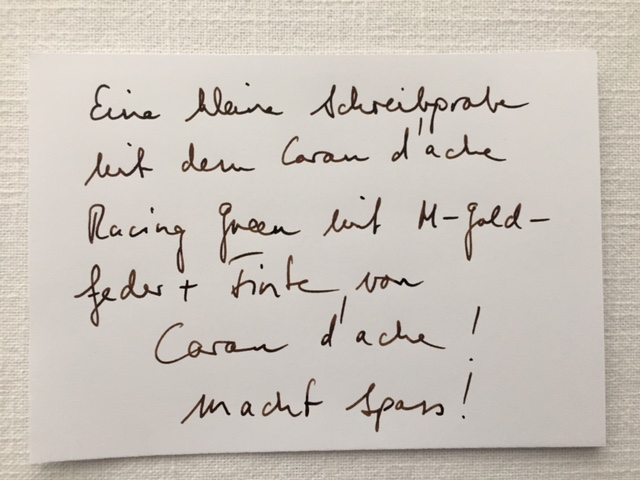 Eine kleine Schreibprobe
mit dem Caran d'ache
Racing Green mit M-Gold-
feder + Tinte von
Caran d'ache!
macht Spass!